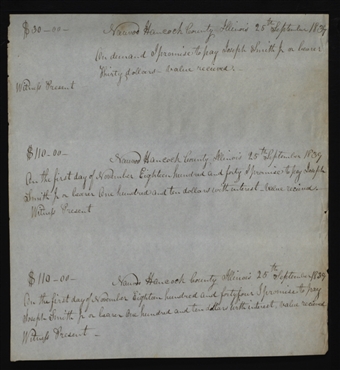 $30-00- Nauvoo Hancock County Illinois 25th September 1839
On demand I promise to pay Joseph Smith Jr or bearer
thirty dollars value recived-
Witness Present
$110-00- Nauvoo Hancock County Illinois 25th September 1839
On the first day of November Eighteen hundred and forty I promise to pay Joseph
Smith Jr or bearer One hundred and ten dollars with interest value recived-
Witness Present
$110-00- Nauvoo Hancock County Illinois 25th September 1839
On the first day of November Eighteen hundred and forty four I promise to pay
Joseph Smith Jr or bearer One hundred and ten dollars with interest value recived
Witness Present-